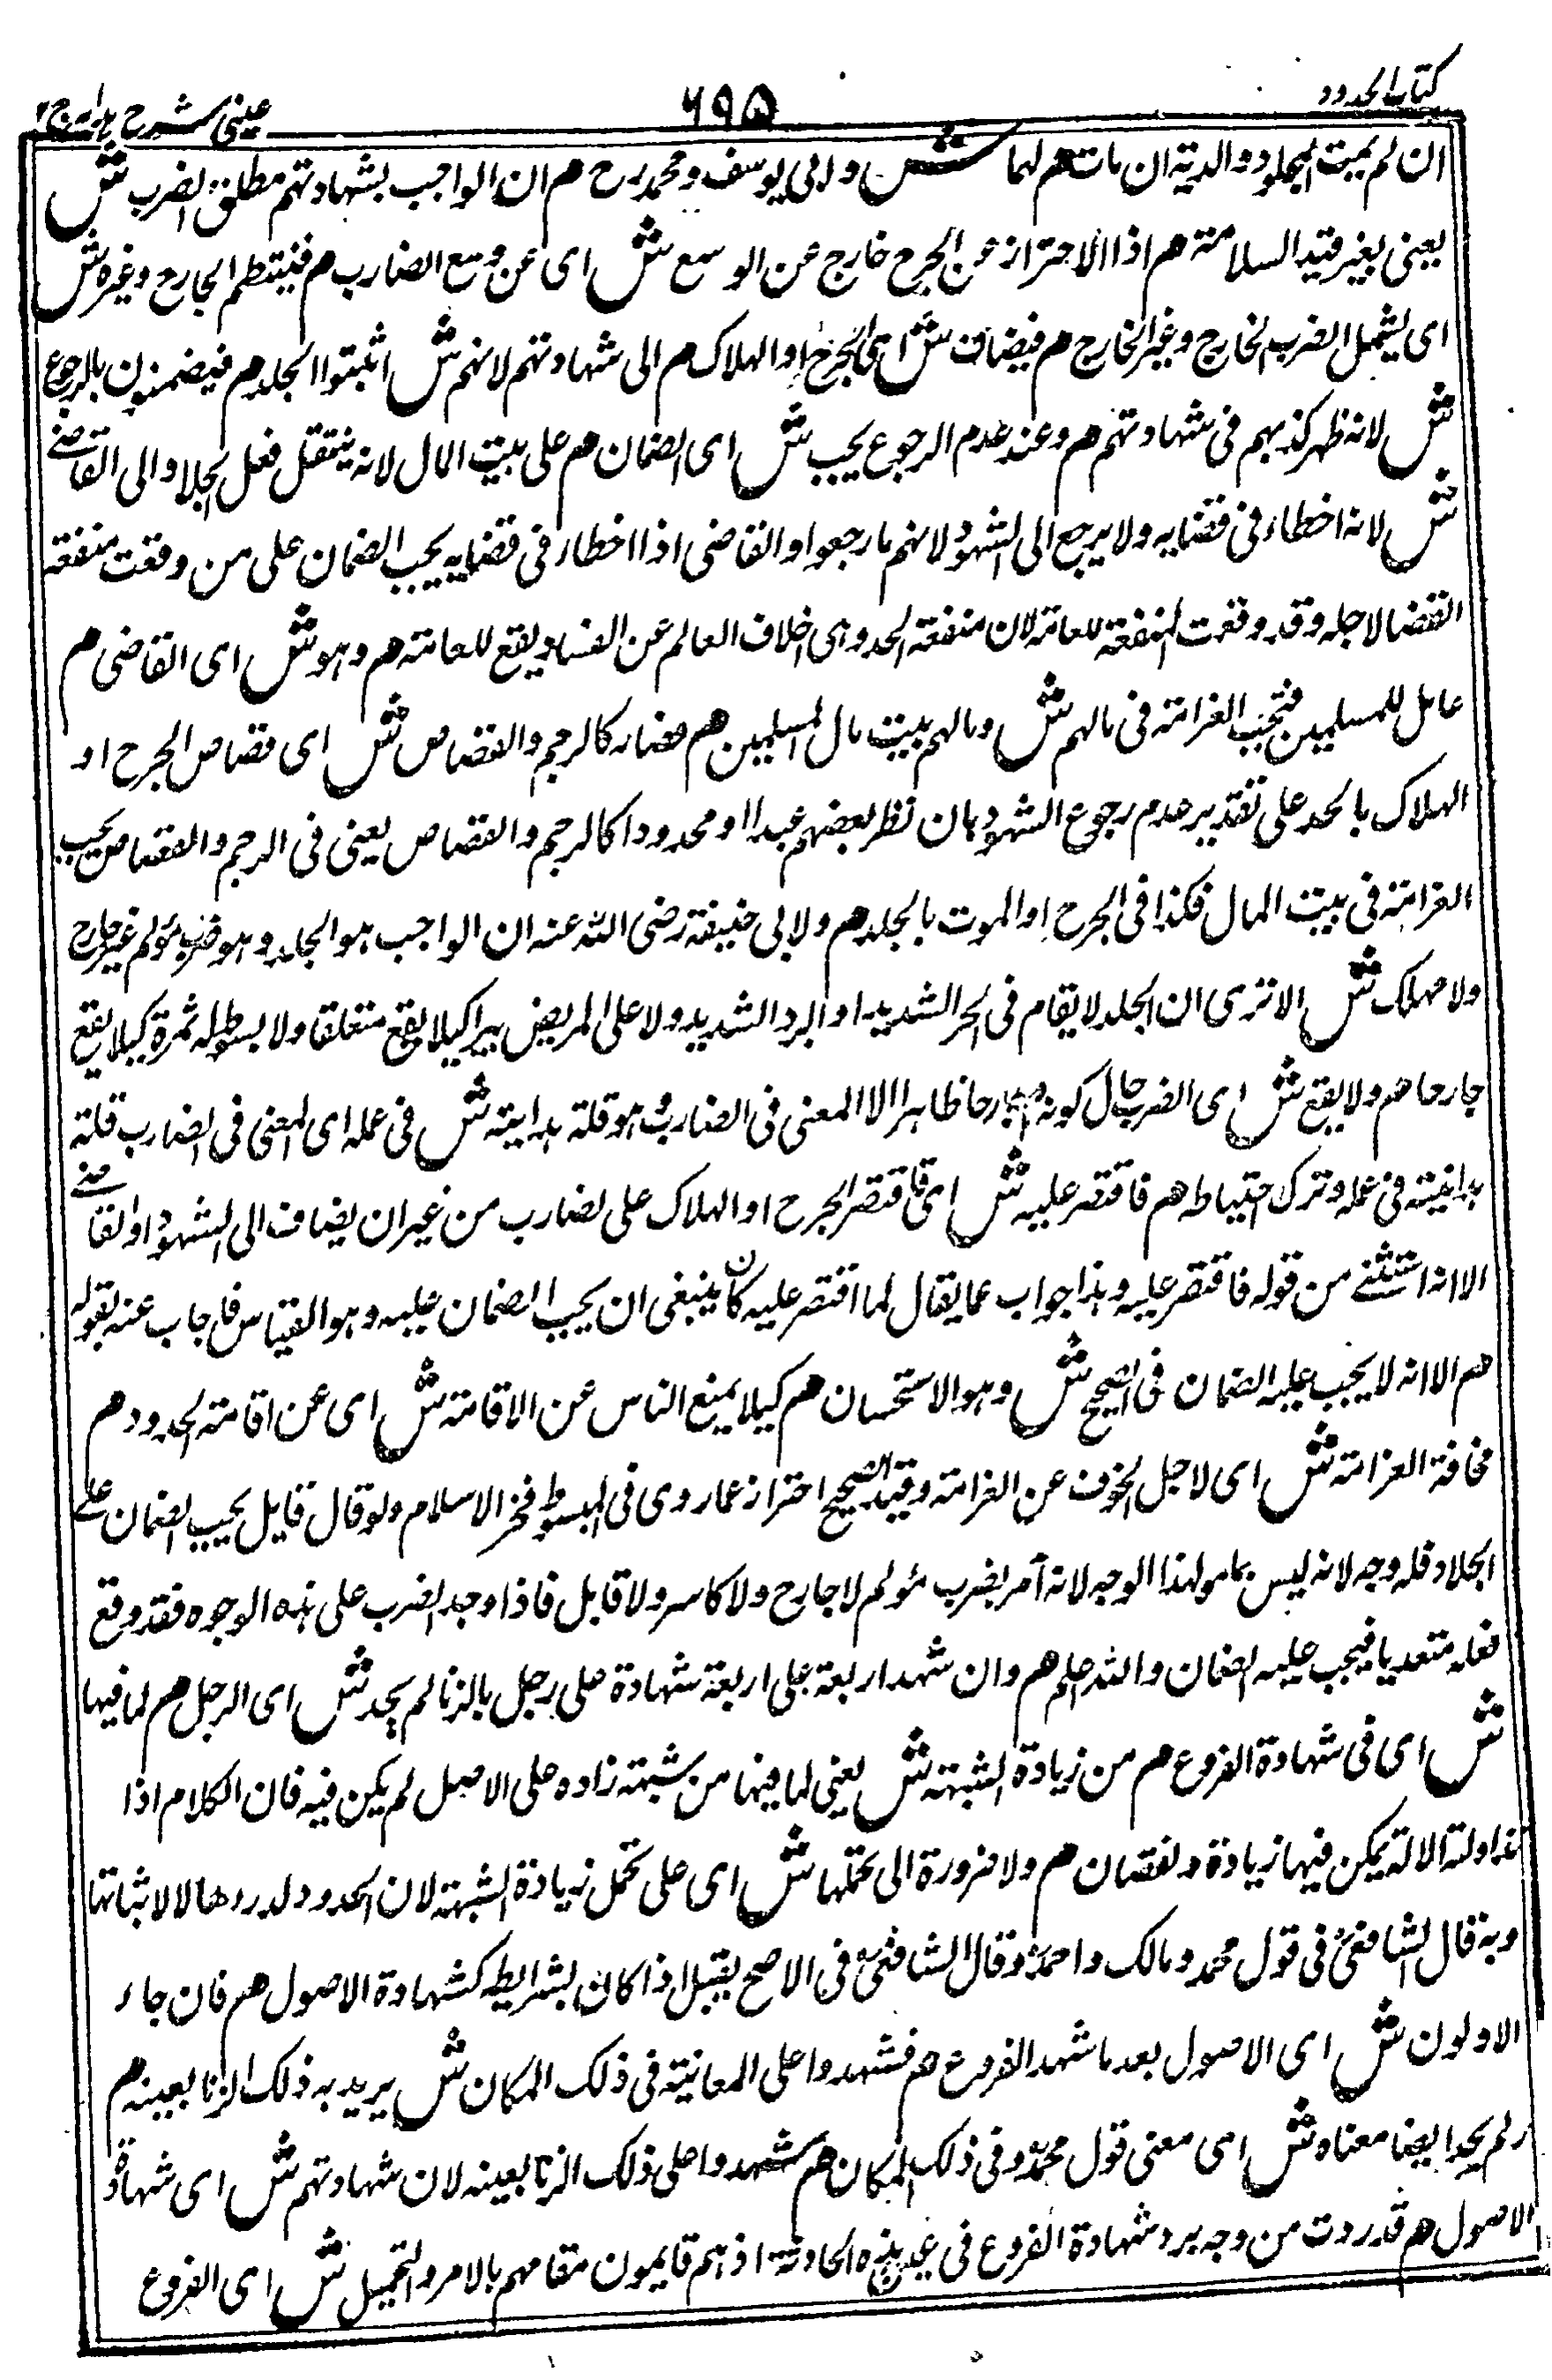 كتاب الحدود
٦٩٥
عينى شرح هدايه ج ٢
ان لم يمت المجلود والدية ان مات هم لهما ش ولابى يوسف ومحمد رح هم ان الواجب بشهادتهم مطلق الضرب ش
يعنى بغير قيد السلامة هم اذا الاحتراز عن الجرح خارج عن الوسع ش اى عن وسع الضارب هم فينتظم الجارح وغيره ش
اى يشمل الضرب الخارج وغير الخارج هم فيضاف ش اى الجرح او الهلاك هم الى شهادتهم لانهم ش اثبتوا الجلد هم فيضمنون بالرجوع
ش لانه ظهر كذبهم فى شهادتهم هم وعند عدم الرجوع يجب ش اى الضمان هم على بيت المال لانه ينتقل فعل الجلاد الى القاضى
ش لانه اخطاء فى قضايه ولا يرجع الى الشهود لانهم ما رجعوا والقاضى اذا اخطاء فى قضايه يجب الضمان على من وقعت منفعة
القضا لاجله وقد وقعت المنفعة للعامة لان منفعة الحد وهى اخلاف العالم عن الفساد يقع للعامة هم وهو ش اى القاضى هم
عامل للمسلمين فتجب الغرامة فى مالهم ش ومالهم بيت مال المسلمين هم فصار كالرجم والقصاص ش اى قصاص الجرح او
الهلاك بالحد على تقدير عدم رجوع الشهود بان نظر بعضهم عبدا او محدودا كالرجم والقصاص يعنى فى الرجم والقصاص يجب
الغرامة فى بيت المال فكذا فى الجرح او الموت بالجلد هم ولابى حنيفة رضى الله عنه ان الواجب هو الجلد وهو ضرب مؤلم غير جارح
ولا مهلك ش الا ترى ان الجلد لا يقام فى الحر الشديد او البرد الشديد ولا على المريض يبرا كيلا يقع متعلقا ولا بسوط له ثمرة كيلا يقع
جارحا هم ولا يقع ش اى الضرب حال كونه هم جارحا ظاهرا الا المعنى فى الضارب وهو قلة هدايته ش فى عمله اى المعنى فى الضارب قلة
هدايته فى عمله وترك احتياطه هم فاقتصر عليه ش اى فاقتصر الجرح او الهلاك على الضارب من غير ان يضاف الى الشهود او القاضى
الا انه استثنى من قوله فاقتصر عليه وهذا جواب عما يقال لما اقتصر عليه كان ينبغى ان يجب الضمان عليه وهو القياس فاجاب عنه بقوله
هم الا انه لا يجب عليه الضمان فى الصحيح ش وهو الاستحسان هم كيلا يمنع الناس عن الاقامة ش اى عن اقامة الحدود هم
مخافة الغرامة ش اى لاجل الخوف عن الغرامة وقيد الصحيح احتراز عما روى فى المبسوط فخر الاسلام ولو قال قايل يجب الضمان على
الجلاد فله وجه لانه ليس بمامور لهذا الوجه لانه آمر بضرب مؤلم لا جارح ولا كاسر ولا قابل فاذا وجد الضرب على هذه الوجوه فقد وقع
فعله متعديا فيجب عليه الضمان والله اعلم هم وان شهد اربعة على اربعة شهادة على رجل بالزنا لم يحد ش اى الرجل هم لما فيها
ش اى فى شهادة الفروع هم من زيادة الشبهة ش يعنى لما فيها من شبهة زاده على الاصل لم يكن فيه فان الكلام اذا
تداولته الالة يمكن فيها زيادة ونقصان هم ولا ضرورة الى تحملها ش اى على تحمل زيادة الشبهة لان الحدود لدردها لا لاثباتها
وبه قال الشافعى فى قول محمد ومالك واحمد وقال الشافعى فى الاصح يقبل اذا كان بشرايط كشهادة الاصول هم فان جاء
الاولون ش اى الاصول بعد ما شهد الفروع هم فشهدوا على المعاينة فى ذلك المكان ش يريد به ذلك الزنا بعينه هم
لم يحد ايضا معناه ش اى معنى قول محمد وفى ذلك المكان هم شهدوا على ذلك الزنا بعينه لان شهادتهم ش اى شهادة
الاصول هم قد ردت من وجه برد شهادة الفروع فى عين هذه الحادثة اذ هم قايمون مقامهم بالامر والتحميل ش اى الفروع